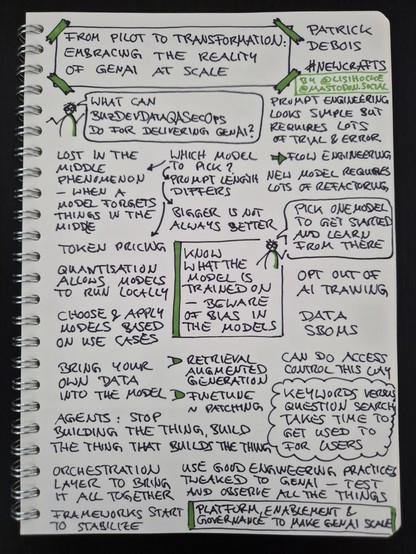 FROM PILOT TO TRANSFORMATION:
EMBRACING THE REALITY
OF GENAI AT SCALE
PATRICK
DEBOIS
#NEWCRAFTS
BY @LISIHOCKE
@MASTODON.SOCIAL
WHAT CAN
BIZDEVDATAQASECOPS
DO FOR DELIVERING GENAI?
PROMPT ENGINEERING
LOOKS SIMPLE BUT
REQUIRES LOTS
OF TRIAL & ERROR
FLOW ENGINEERING
NEW MODEL REQUIRES
LOTS OF REFACTORING
LOST IN THE
MIDDLE
PHENOMENON
– WHEN A
MODEL FORGETS
THINGS IN THE
MIDDLE
WHICH MODEL
TO PICK?
PROMPT LENGTH
DIFFERS
BIGGER IS NOT
ALWAYS BETTER
PICK ONE MODEL
TO GET STARTED
AND LEARN
FROM THERE
TOKEN PRICING
QUANTISATION
ALLOWS MODELS
TO RUN LOCALLY
CHOOSE & APPLY
MODELS BASED
ON USE CASES
KNOW
WHAT THE
MODEL IS
TRAINED ON
– BEWARE
OF BIAS IN
THE MODELS
OPT OUT OF
AI TRAINING
DATA
SBOMS
BRING YOUR
OWN DATA
INTO THE MODEL
RETRIEVAL
AUGMENTED
GENERATION
FINETUNE
~ PATCHING
CAN DO ACCESS
CONTROL THIS WAY
KEYWORDS VERSUS
QUESTION SEARCH
TAKES TIME TO
GET USED TO
FOR USERS
AGENTS: STOP
BUILDING THE THING, BUILD
THE THING THAT BUILDS THE THING
ORCHESTRATION
LAYER TO BRING
IT ALL TOGETHER
USE GOOD ENGINEERING PRACTICES
TWEAKED TO GENAI – TEST
AND OBSERVE ALL THE THINGS
FRAMEWORKS START
TO STABILIZE
PLATFORM, ENABLEMENT &
GOVERNANCE TO MAKE GENAI SCALE